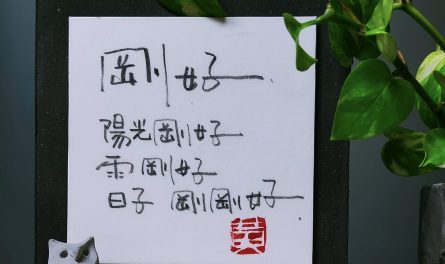 剛好
陽光剛好
雨剛好
日子 剛剛好
黃